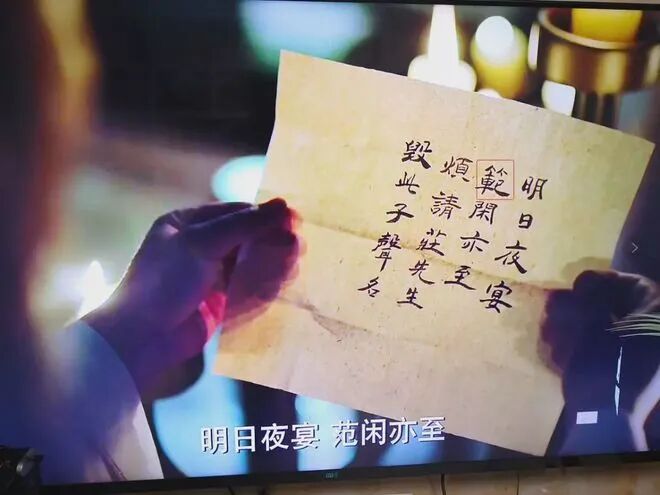 明日夜宴
範閑亦至
煩請莊先生
毀此子聲名
明日夜宴 范闲亦至